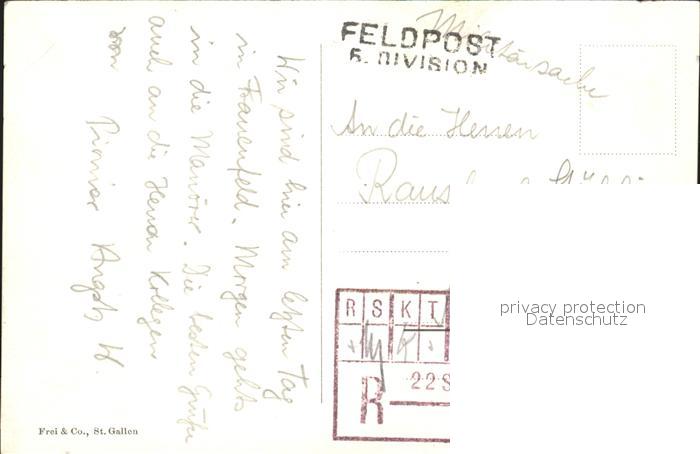 Wir sind hier am letzten Tag
in Frauenfeld. Morgen gehts
in die Manöver. Die besten Grüße
auch an die Herren Kollegen
von Pionier Angst W.
Frei & Co., St. Gallen
Militärsache
FELDPOST
6. DIVISION
An die Herren
R S K T
R
22 S
privacy protection
Datenschutz